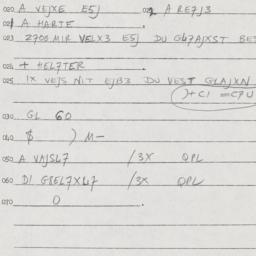 020 A VEJXE E5J 022 A RE7J3
021 A HARTE
023 2700 MIR VELX3 E5J DU GL7AJXST BET
024 + HEL7TER
025 IX VEJS NIT EJB3 DU VEST GLAJXN
)+C1 = C7U
030 GL 60
040 $ ) M-
050 A VAJSL7 /3X QPL
060 DI GSEL7XL7 /3X QPL
070 0